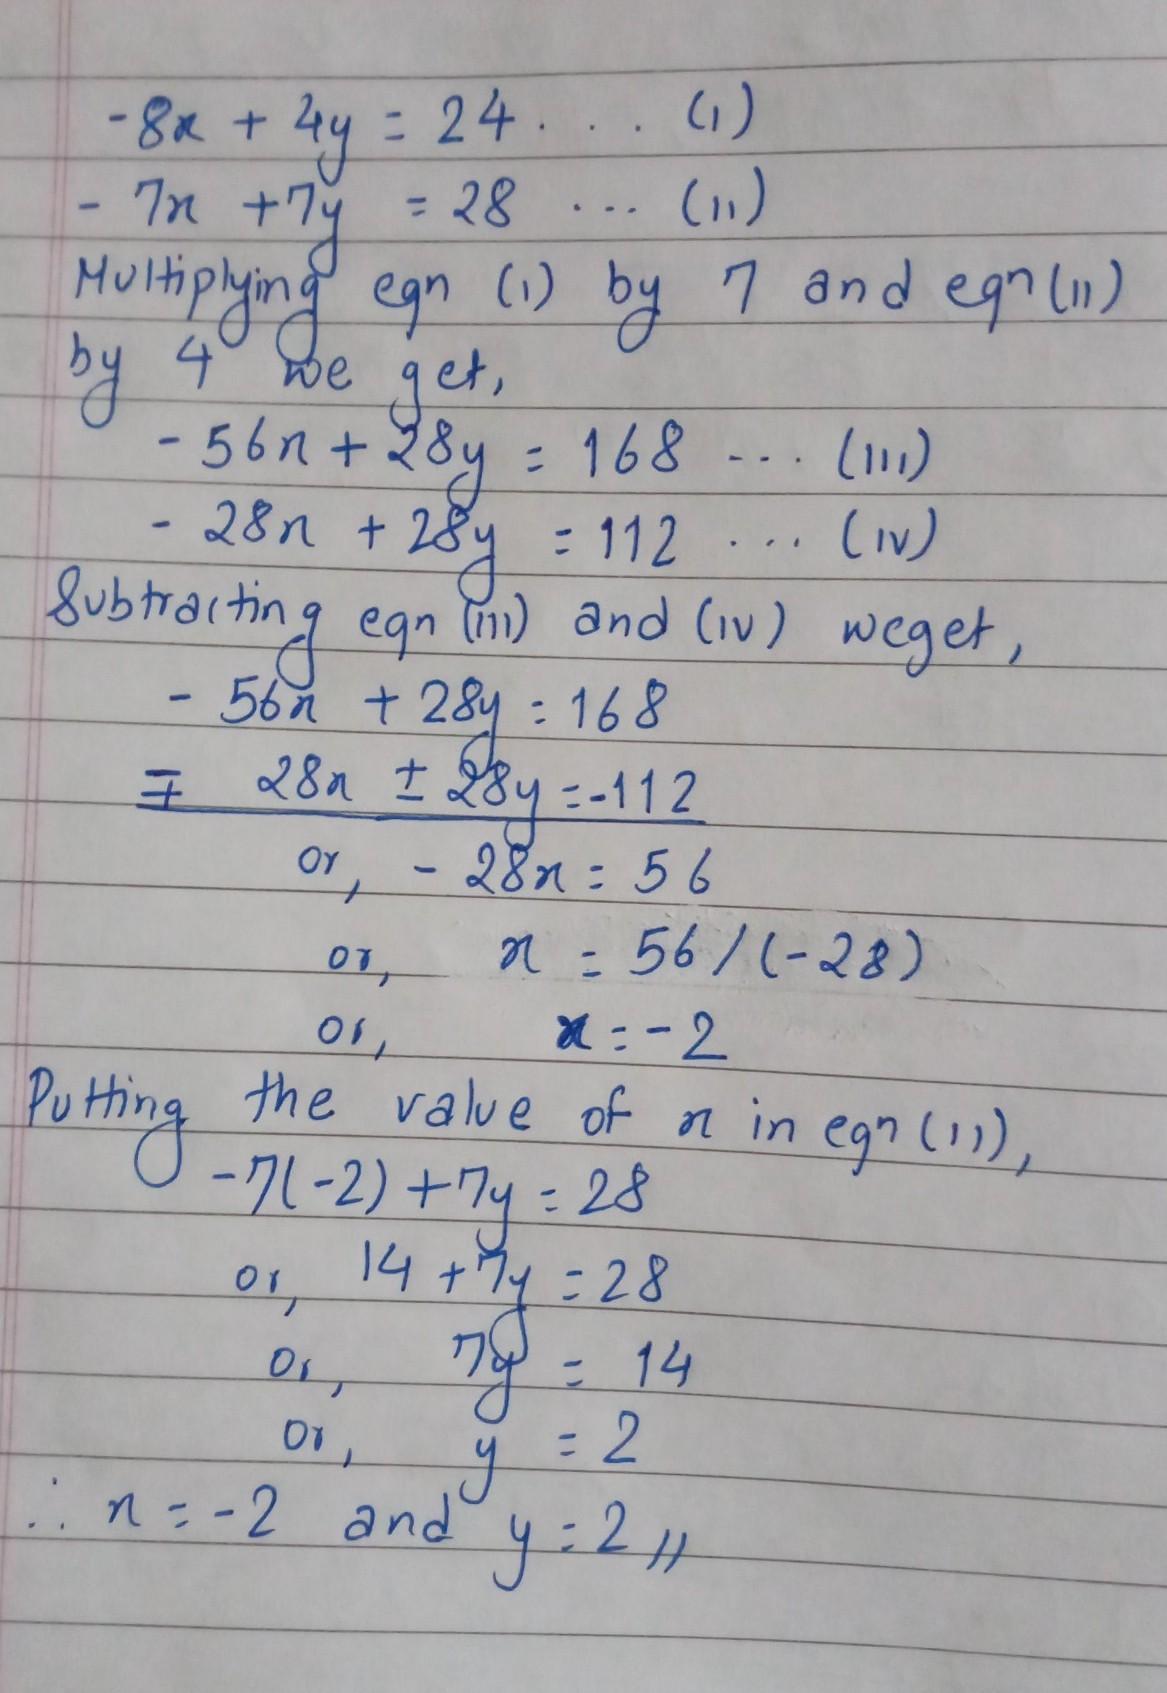 -8x + 4y = 24 . . . (i)
- 7x + 7y = 28 ... (ii)
Multiplying eqn (i) by 7 and eqn (ii)
by 4 we get,
- 56x + 28y = 168 --- (iii)
- 28x + 28y = 112 ... (iv)
Subtracting eqn (iii) and (iv) weget,
- 56x + 28y = 168
∓ 28x ± 28y = -112
or, - 28x = 56
or, x = 56 / (-28)
or, x = -2
Putting the value of x in eqn (ii),
-7(-2) + 7y = 28
or, 14 + 7y = 28
or, 7y = 14
or, y = 2
∴ x = -2 and y = 2 //